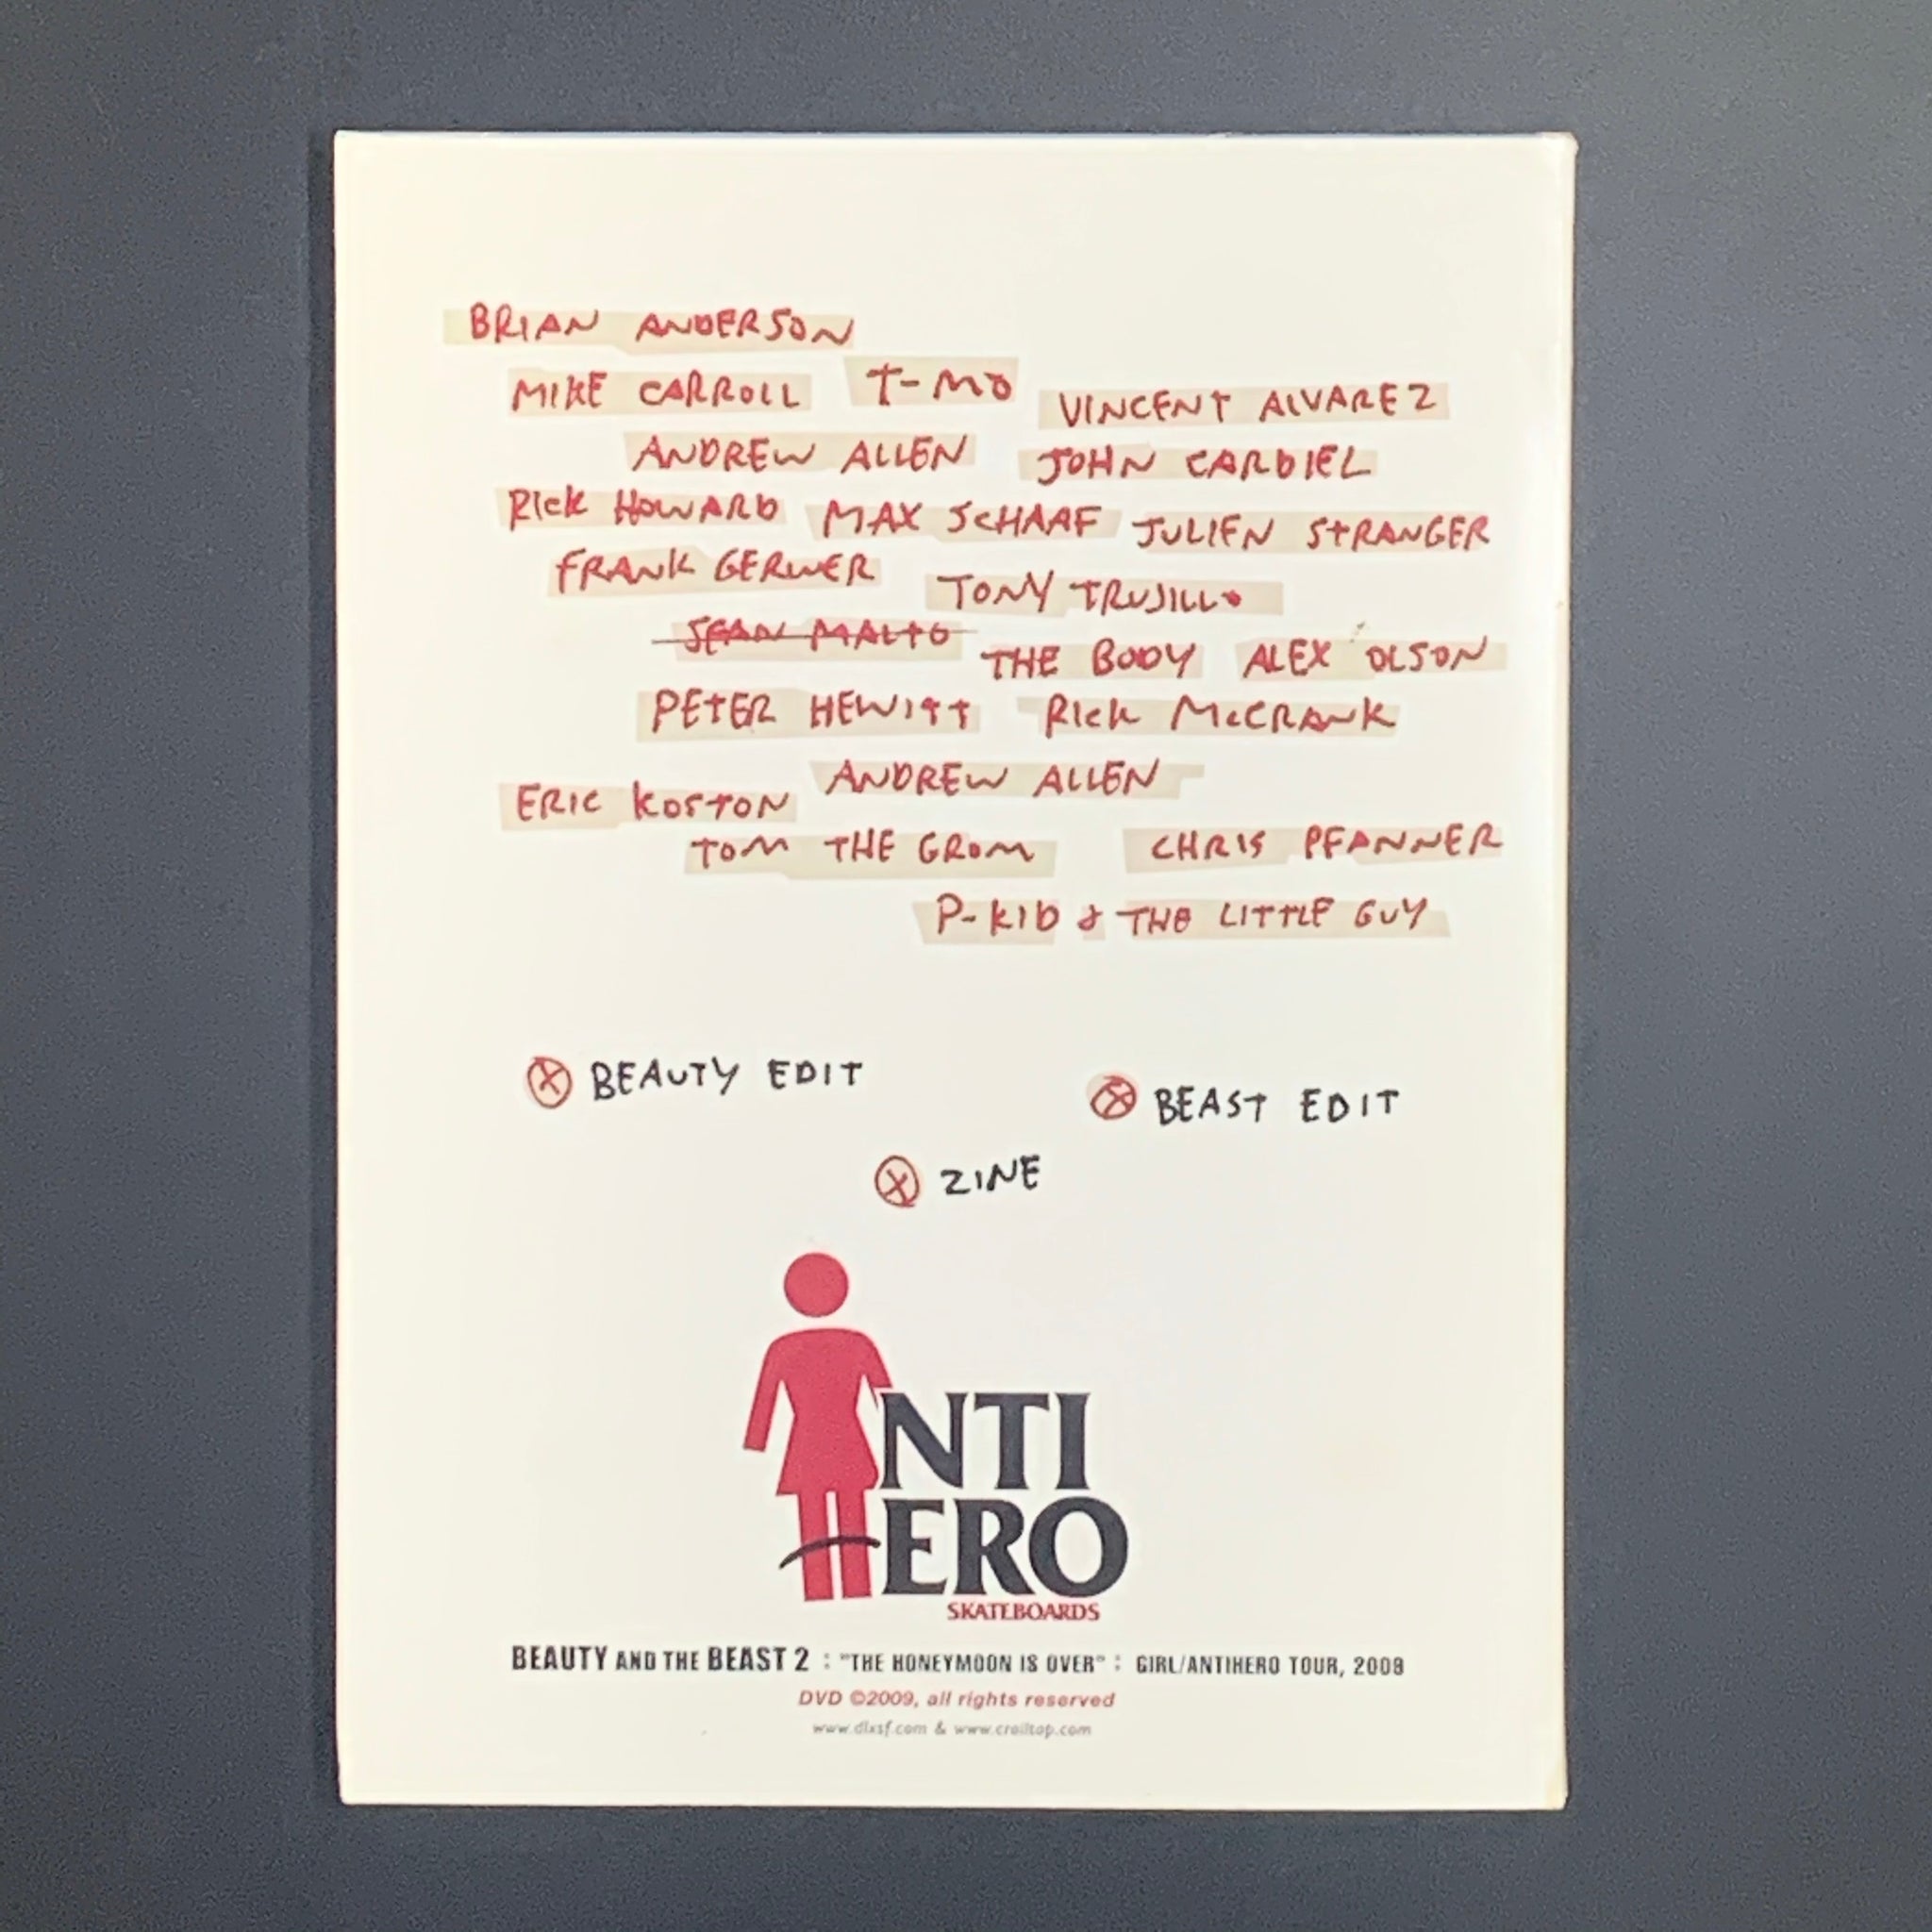 BRIAN ANDERSON
MIKE CARROLL T-MO VINCENT ALVAREZ
ANDREW ALLEN JOHN CARDIEL
RICK HOWARD MAX SCHAAF JULIEN STRANGER
FRANK GERWER TONY TRUJILLO
SEAN MALTO THE BODY ALEX OLSON
PETER HEWITT RICK McCRANK
ERIC KOSTON ANDREW ALLEN
TOM THE GROM CHRIS PFANNER
P-KID & THE LITTLE GUY
BEAUTY EDIT BEAST EDIT
ZINE
NTI
ERO
SKATEBOARDS
BEAUTY AND THE BEAST 2 : "THE HONEYMOON IS OVER" : GIRL/ANTIHERO TOUR, 2009
DVD ©2009, all rights reserved
www.dlxsf.com & www.crailtap.com